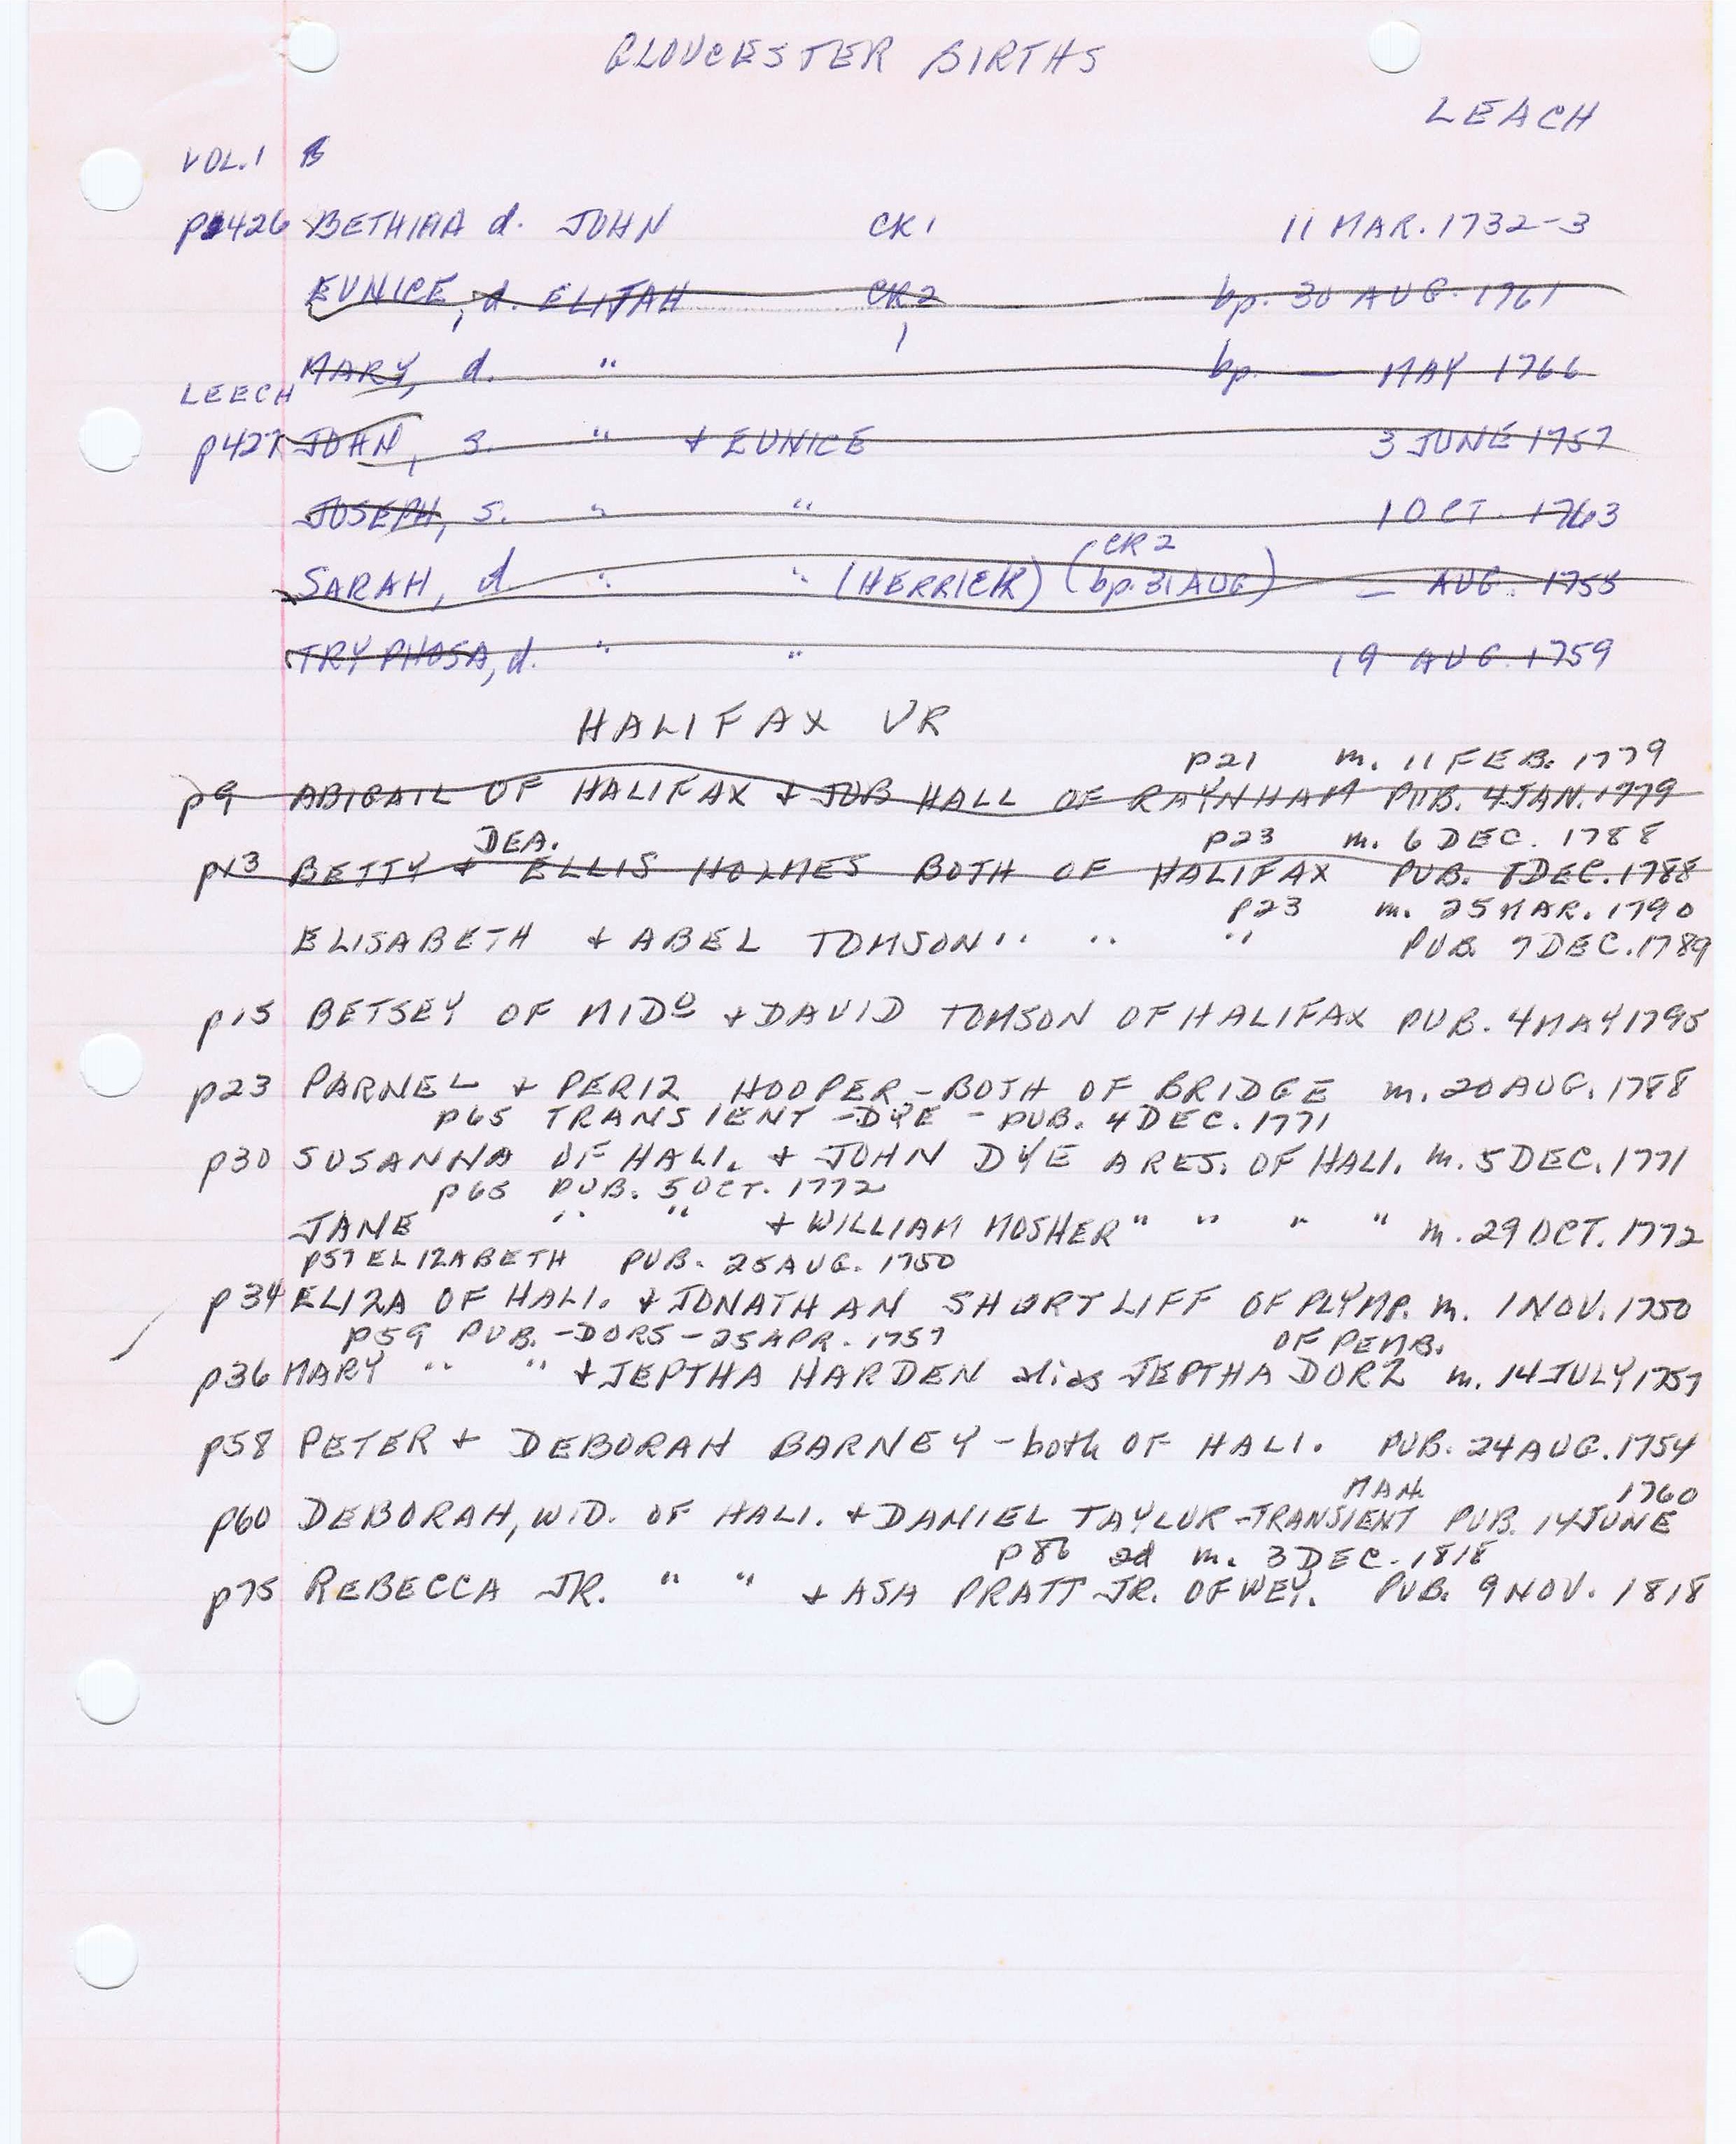 GLOUCESTER BIRTHS
LEACH
VOL. 1 B
p426 BETHIAH d. JOHN CK1 11 MAR. 1732-3
EUNICE, d. ELIJAH CR2 bp. 30 AUG. 1961
MARY, d. " 1 bp. — MAY 1766
LEECH
p427 JOHN, s. " + EUNICE 3 JUNE 1757
JOSEPH, s. " " 1 OCT. 1763
CR2
SARAH, d " " (HERRICK) (bp. 31 AUG) — AUG. 1755
TRYPHOSA, d. " " 19 AUG. 1759
HALIFAX VR
p21 m. 11 FEB. 1779
p9 ABIGAIL OF HALIFAX + JOB HALL OF RAYNHAM PUB. 4 JAN. 1779
DEA. p23 m. 6 DEC. 1788
p13 BETTY + ELLIS HOLMES BOTH OF HALIFAX PUB. DEC. 1788
p23 m. 25 MAR. 1790
ELISABETH + ABEL TOMSON " " " PUB. 7 DEC. 1789
p15 BETSEY OF MIDO + DAVID TOMSON OF HALIFAX PUB. 4 MAY 1795
p23 PARNEL + PERIZ HOOPER - BOTH OF BRIDGE m. 20 AUG. 1788
p65 TRANSIENT - DYE - PUB. 4 DEC. 1771
p30 SUSANNA OF HALI. + JOHN DYE A RES. OF HALI. m. 5 DEC. 1771
p65 PUB. 5 OCT. 1772
JANE " " + WILLIAM MOSHER " " " " m. 29 OCT. 1772
p57 ELIZABETH PUB. 25 AUG. 1750
p34 ELIZA OF HALI. + JONATHAN SHORTLIFF OF PLYMP. m. 1 NOV. 1750
p59 PUB. - DORS - 25 APR. 1757 OF PEMB.
p36 MARY " " + JEPTHA HARDEN alias JEPTHA DORZ m. 14 JULY 1757
p58 PETER + DEBORAH BARNEY - both OF HALI. PUB. 24 AUG. 1754
MAN 1760
p60 DEBORAH, WID. OF HALI. + DANIEL TAYLOR - TRANSIENT PUB. 14 JUNE
p86 2d m. 3 DEC. 1818
p75 REBECCA JR. " " + ASA PRATT JR. OF WEY. PUB. 9 NOV. 1818